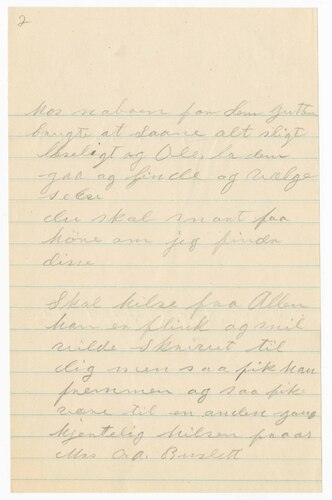 2
hos naboen for dem gutten
brugte at laane alt sligt
læseligt og Ole, la dem
gaa og finde og vælge
selv
du skal snart faa
høre om jeg finder
disse
Skal hilse fra Allen
han er flink og
vilde skrevet til
dig men saa fik han
og saa fik
være til en anden gang
kjertelig hilsen fra os
Mrs O.A. Buslett